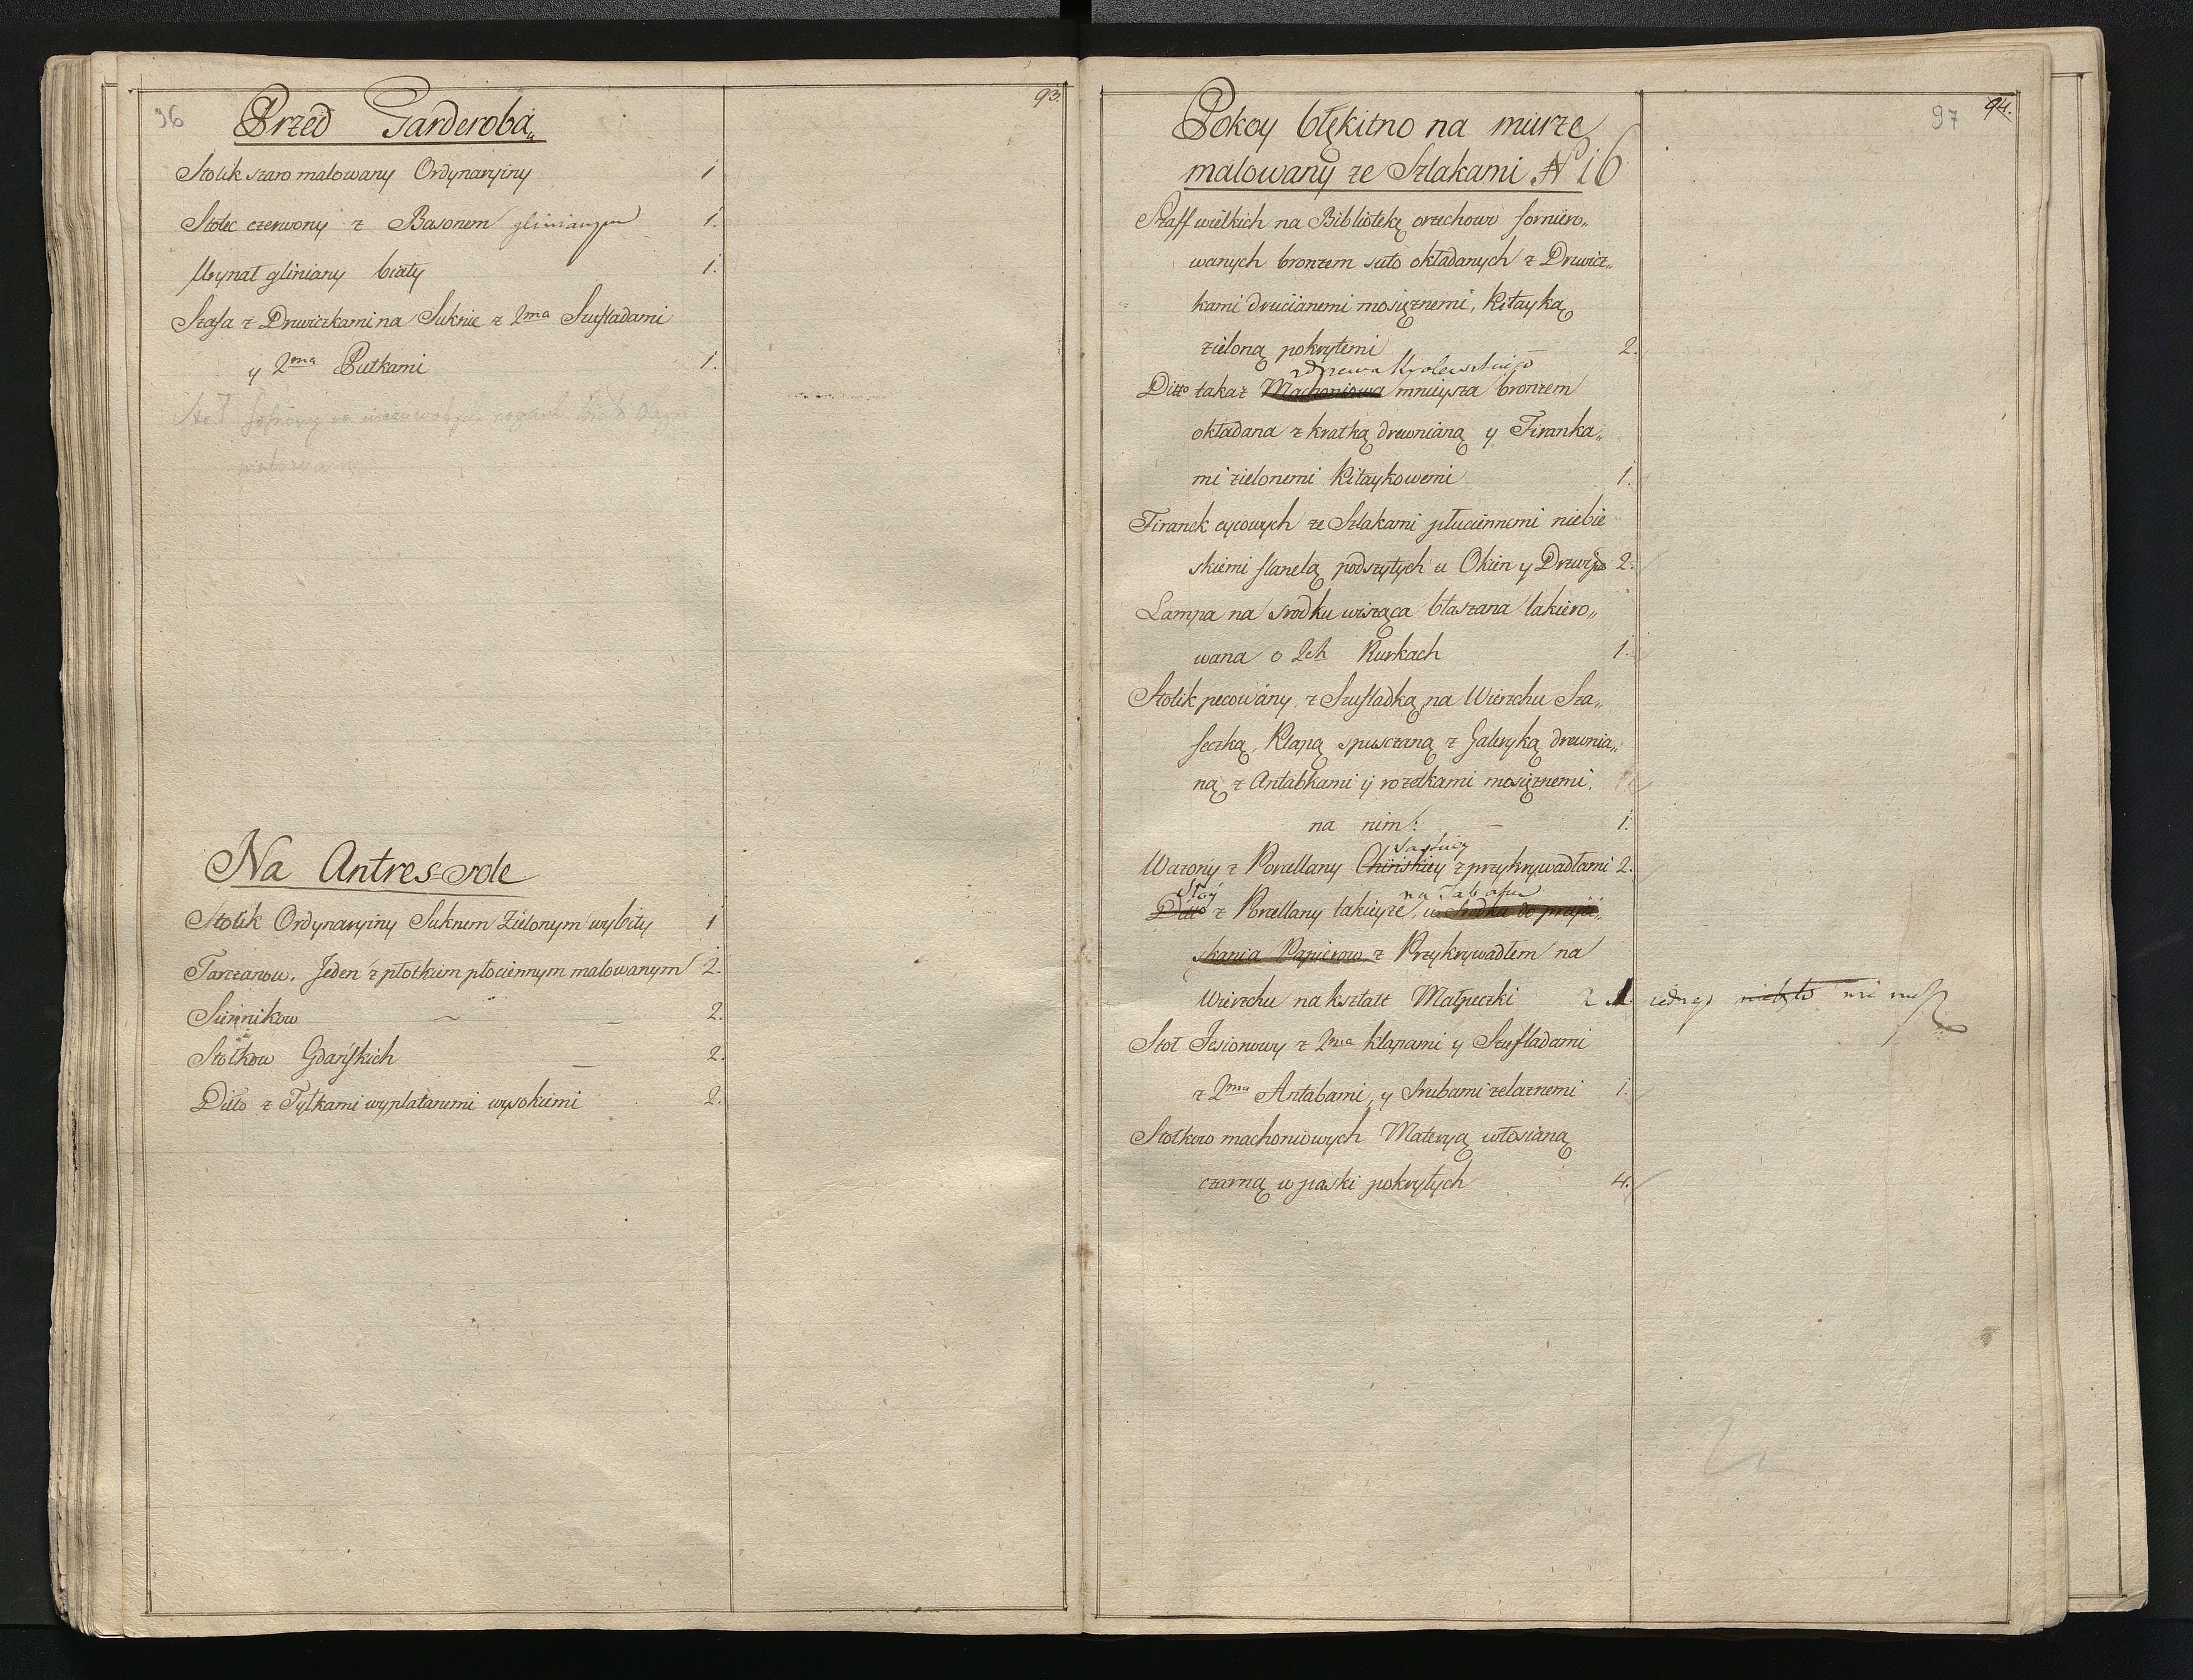 96
93.
Przed Garderobą
Stolik szaro malowany Ordynaryiny 1
Stolec czerwony z Basonem glinianym 1.
Urynał gliniany biały 1.
Szafa z Drzwiczkami na Suknie z 2ma Szufladami
y 2ma Pułkami 1.
Stoł
Na Antres-sole
Stolik Ordynaryiny Suknem Zielonym wybity 1
Tarczanow. Jeden z płotkim płociennym malowanym 2.
Siennikow 2.
Stołkow Gdańskich 2.
Ditto z Tyłkami wyplatanemi wysokiemi 2.
97
94.
Pokoy błękitno na murze
malowany ze Szlakami N 16
Szaff wielkich na Bibliotekę orzechowo fornierow„
wanych bronzem suto okładanych z Drwicz„
kami drucianemi mosiężnemi, Kitayką
zieloną pokrytemi 2.
z drzewa Krolewskiego
Ditto takaż Machoniowa mnieysza bronzem
okładana z kratką drewnianą y Firanka„
mi zielonemi Kitaykowemi 1.
Firanek cycowych ze Szlakami płuciennemi niebie
skiemi flanelą podszytych u Okien y Drzwi 2.
Lampa na srodku wisząca blaszana lakiero„
wana o 2ch Rurkach 1.
Stolik pecowany z Szufladką, na Wierzchu Sza„
feczką, Klapą spusczaną z Galeryką drewnia„
ną z Antabkami y rozetkami mosiężnemi,
na nim: 1.
Saskiey
Wazony z Porcellany Chińskiey z przykrywadłami 2.
Słoy na Tabakę
Ditto z Porcellany takieyże, w Srodku do przyci„
skania Papierow z Przykrywadłem na
Wierzchu na kształt Małpeczki 2 1. iednego niebyło nie masz
Stoł Jesionowy z 2ma klapami y Szufladami
z 2ma Antabami, y Srubami żelaznemi 1.
Stołkow machoniowych Materyą włosianą
czarną w paski pokrytych 4.